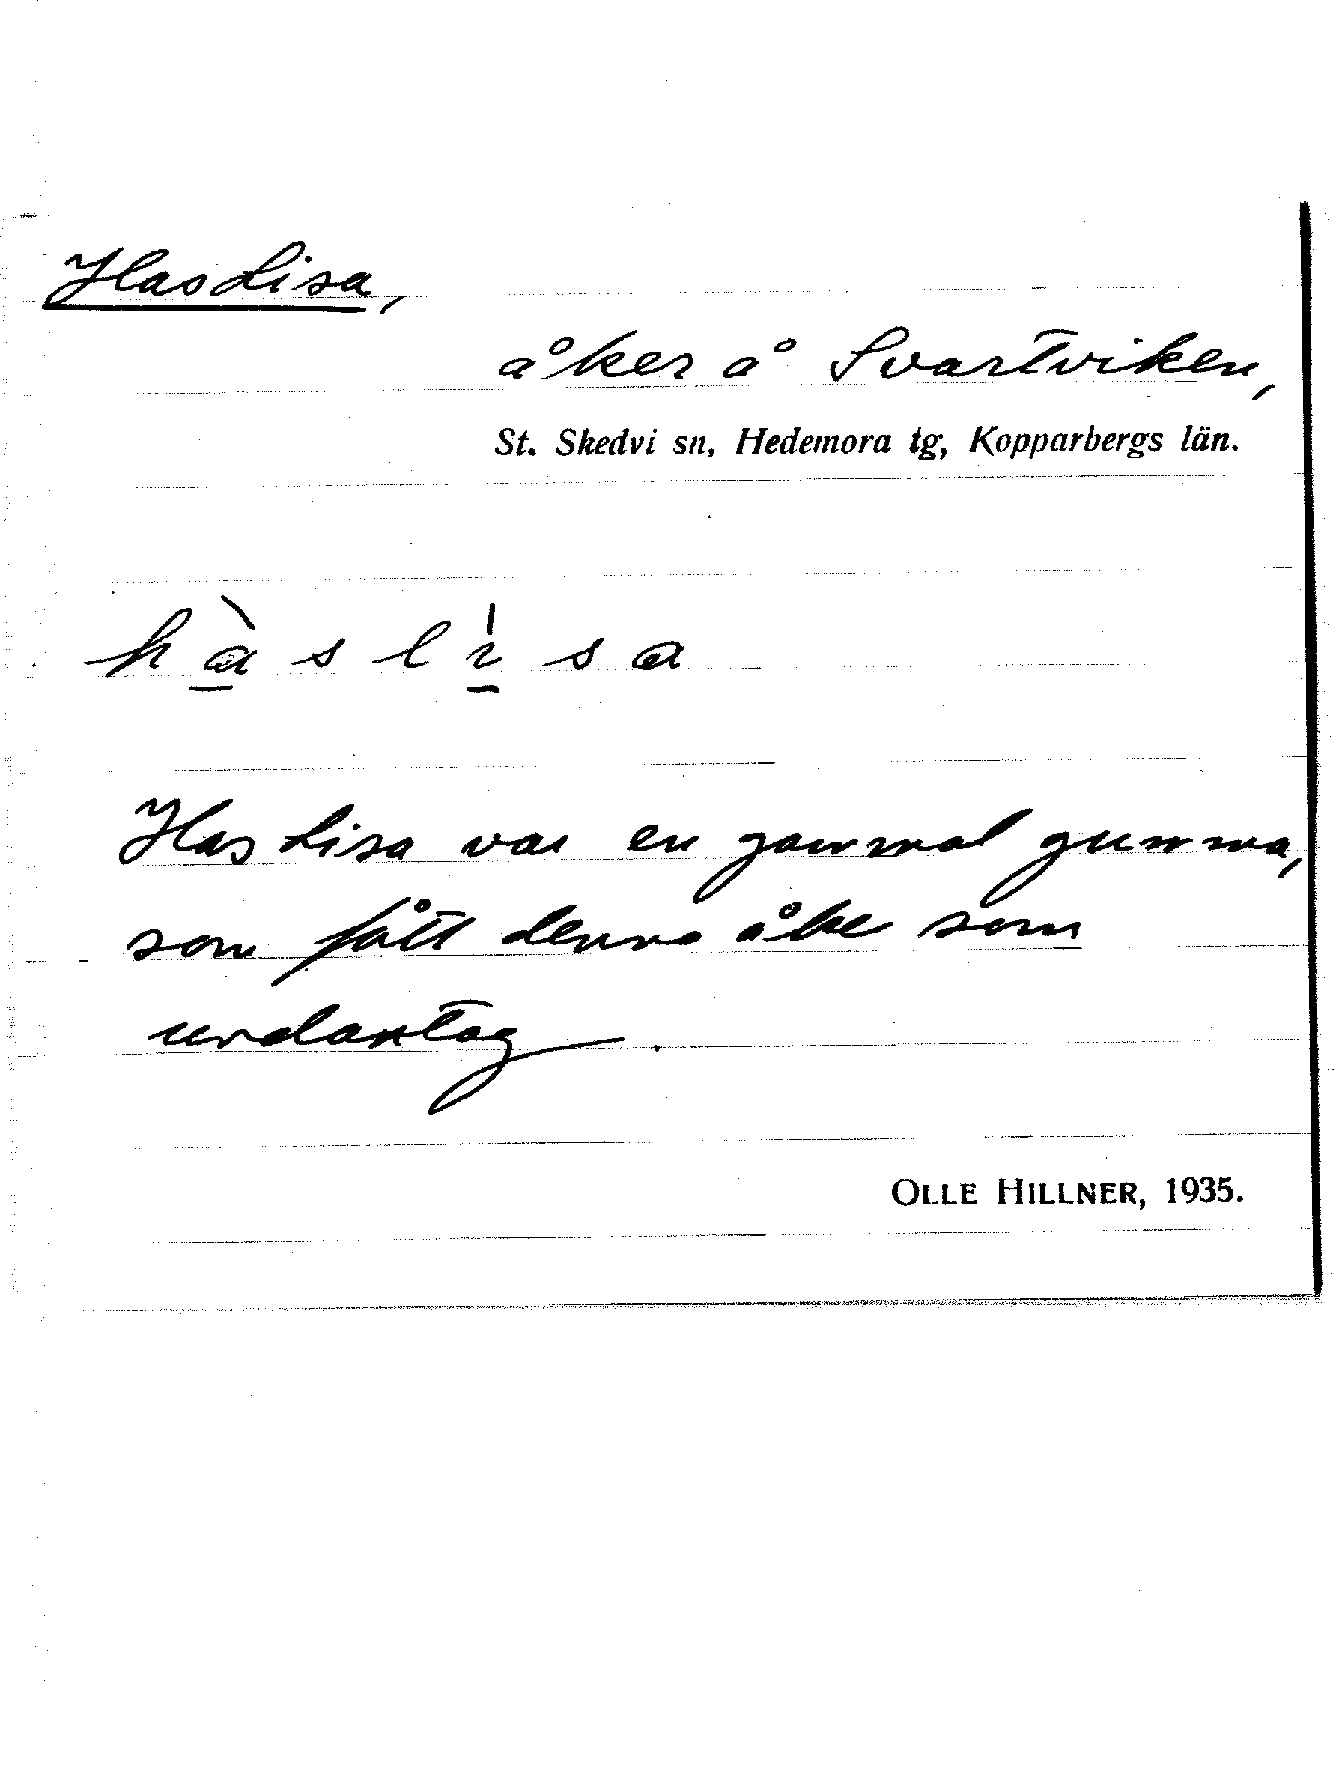 Has Lisa,
åker å Svartviken,
St. Skedvi sn, Hedemora tg, Kopparbergs län.
h à s l ì s a
Has Lisa var en gammal gumma,
som fått denna åker som
undantag.
OLLE HILLNER, 1935.